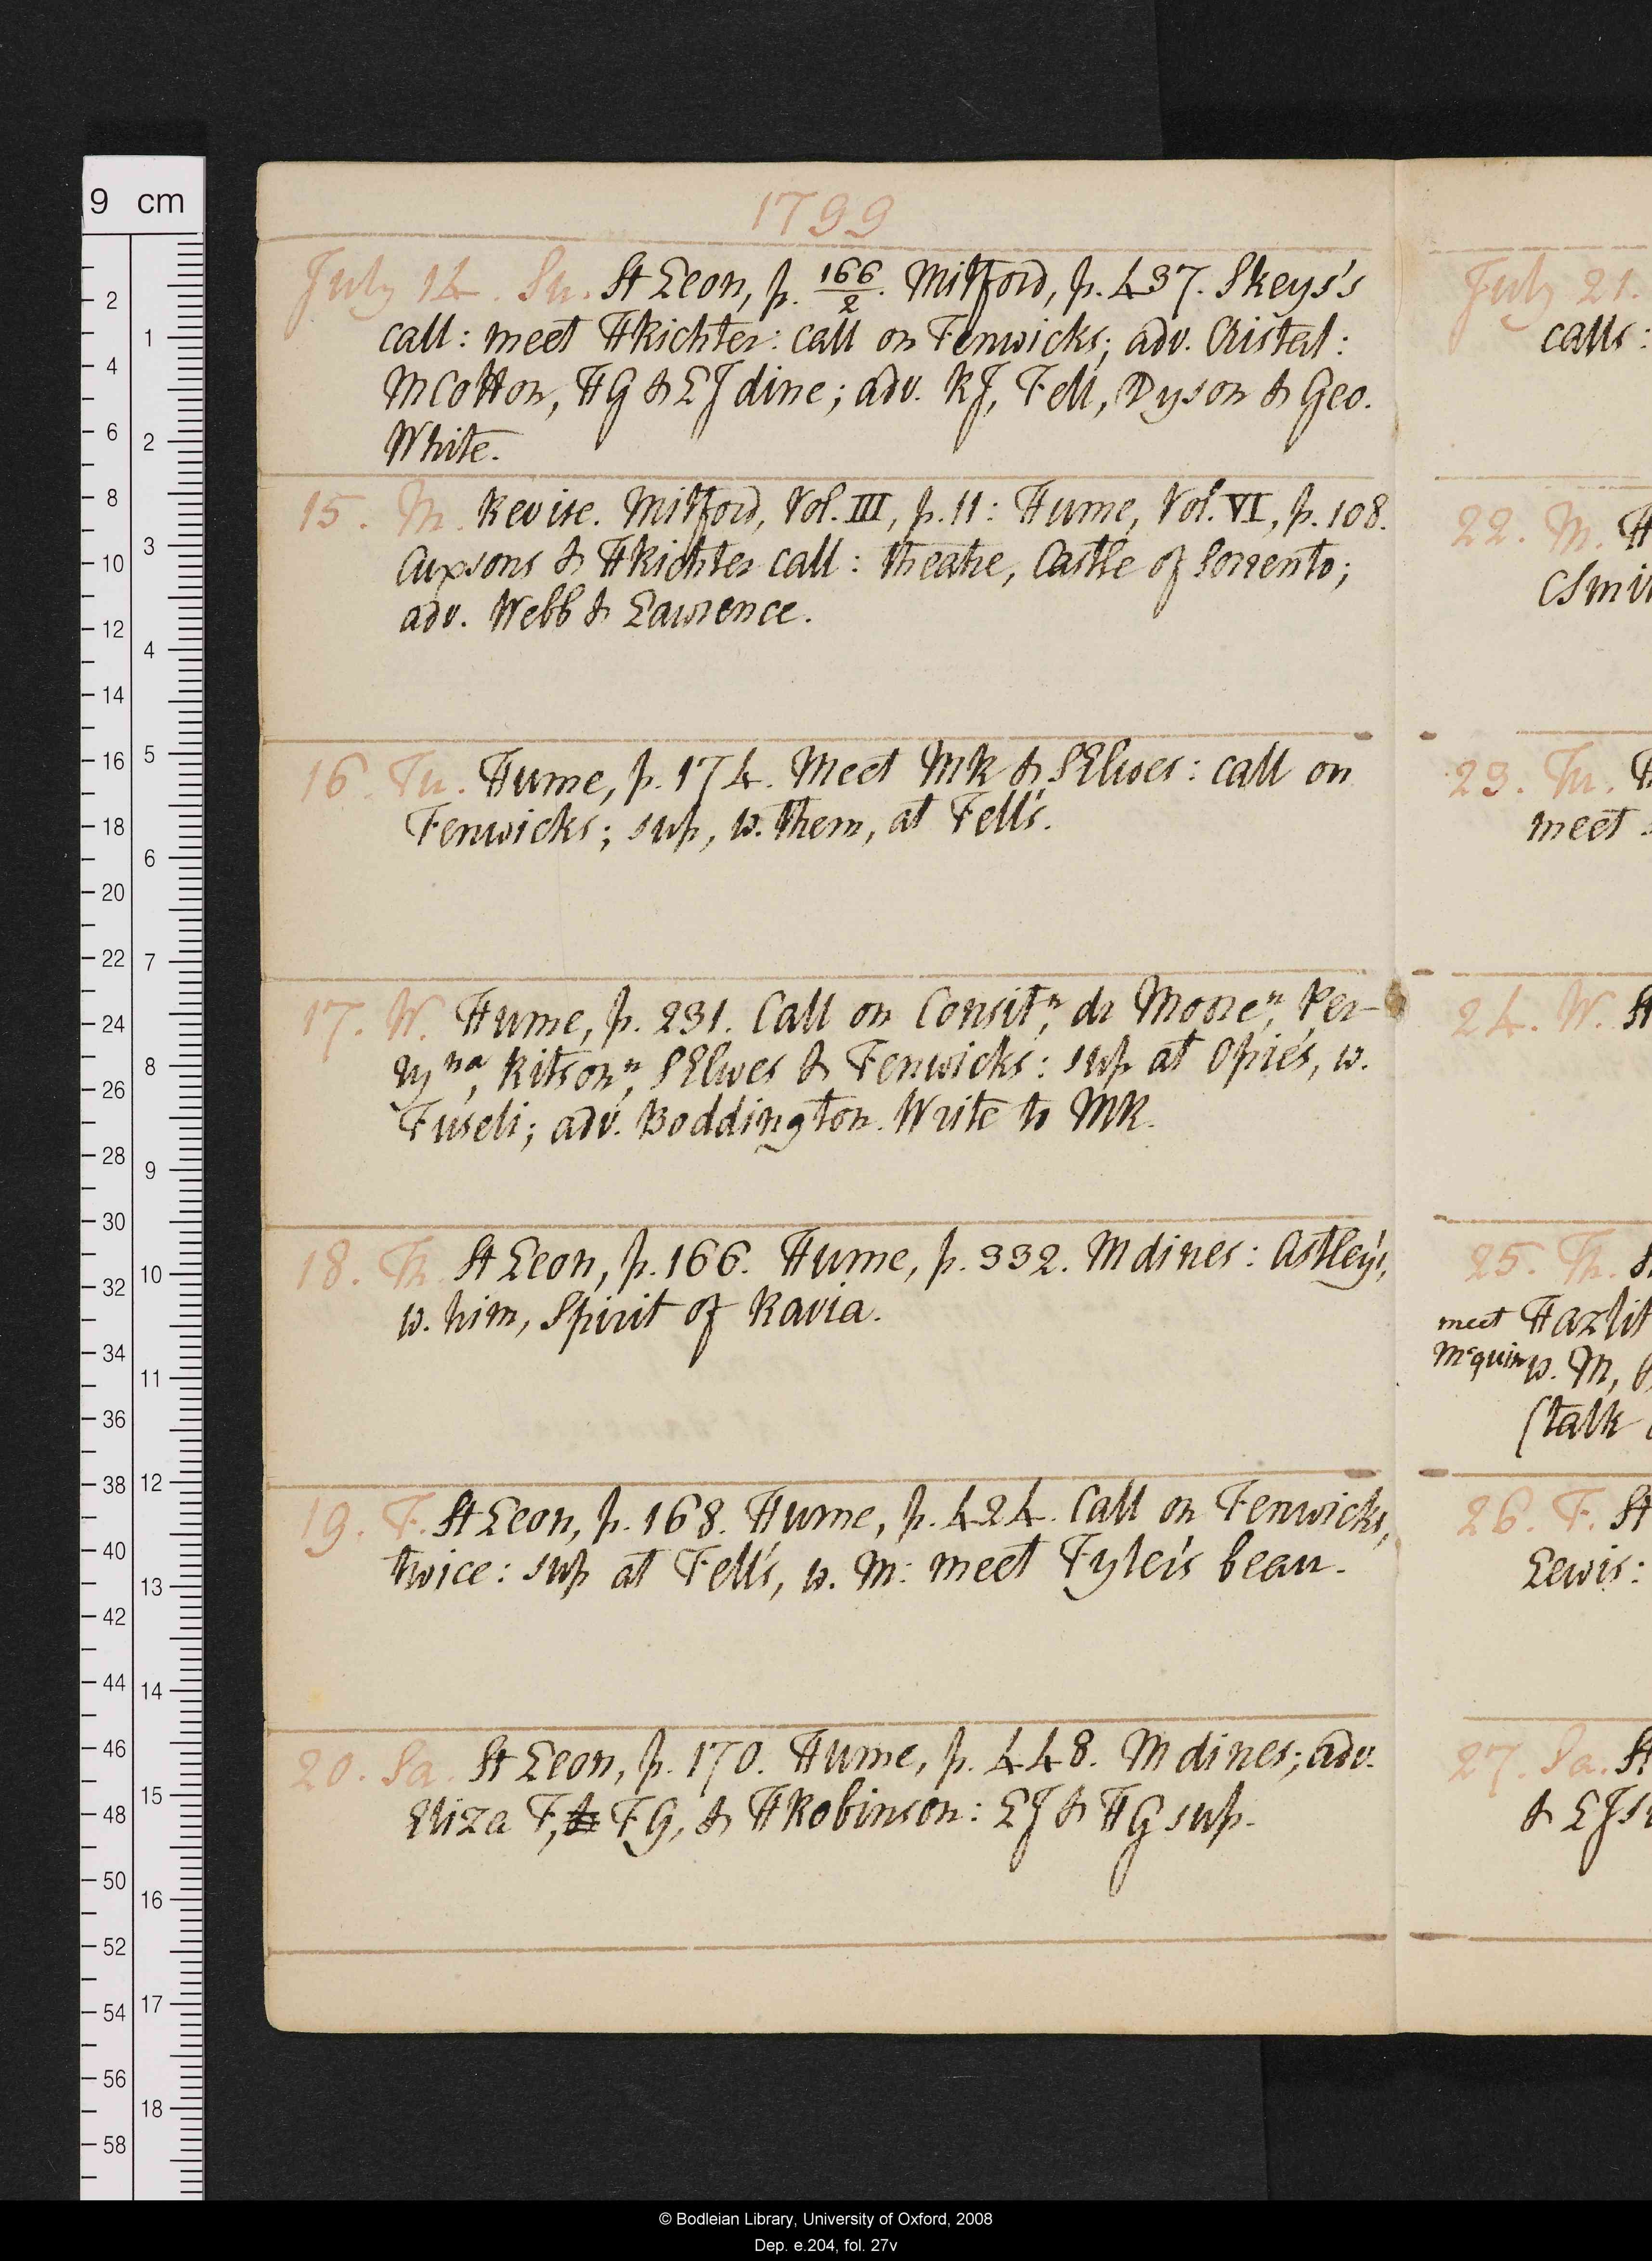 1799
July 14. Su. St Leon, p. 166/2. Mitford, p. 437. Skeys's
call: meet HRichter: call on Fenwicks; adv. Cristal:
M Cotton, HG & LJ dine; adv. RJ, Fell, Dyson & Geo.
White.
15. M. Revise. Mitford, Vol. III, p. 11: Hume, Vol. VI, p. 108.
Cuxsons & HRichter call: theatre, Castle of Sorrento;
adv. Webb & Lawrence.
16. Tu. Hume, p. 174. Meet MR & SElwes: call on
Fenwicks; sup, w. them, at Fell's.
17. W. Hume, p. 231. Call on Consitⁿ, dr Mooreⁿ, Per-
ryⁿᵃ, Ritsonⁿ, SElwes & Fenwicks: sup at Opie's, w.
Fuseli; adv. Boddington. Write to MR.
18. Th. St Leon, p. 166. Hume, p. 332. M dines: Astley's,
w. him, Spirit of Ravia.
19. F. St Leon, p. 168. Hume, p. 424. Call on Fenwicks,
twice: sup at Fell's, w. M: meet Tyler's beau.
20. Sa. St Leon, p. 170. Hume, p. 448. M dines; adv.
Eliza F, & FG, & HRobinson: LJ & HG sup.
July 21.
calls:
22. M. H
CSmi
23. Tu. H
meet
24. W. St
25. Th. S
meet Hazlit
Mᶜquin w. M,
(talk
26. F. St
Lewis:
27. Sa. St
& LJ s
9 cm
2
4
6
8
10
12
14
16
18
20
22
24
26
28
30
32
34
36
38
40
42
44
46
48
50
52
54
56
58
1
2
3
4
5
6
7
8
9
10
11
12
13
14
15
16
17
18
© Bodleian Library, University of Oxford, 2008
Dep. e.204, fol. 27v